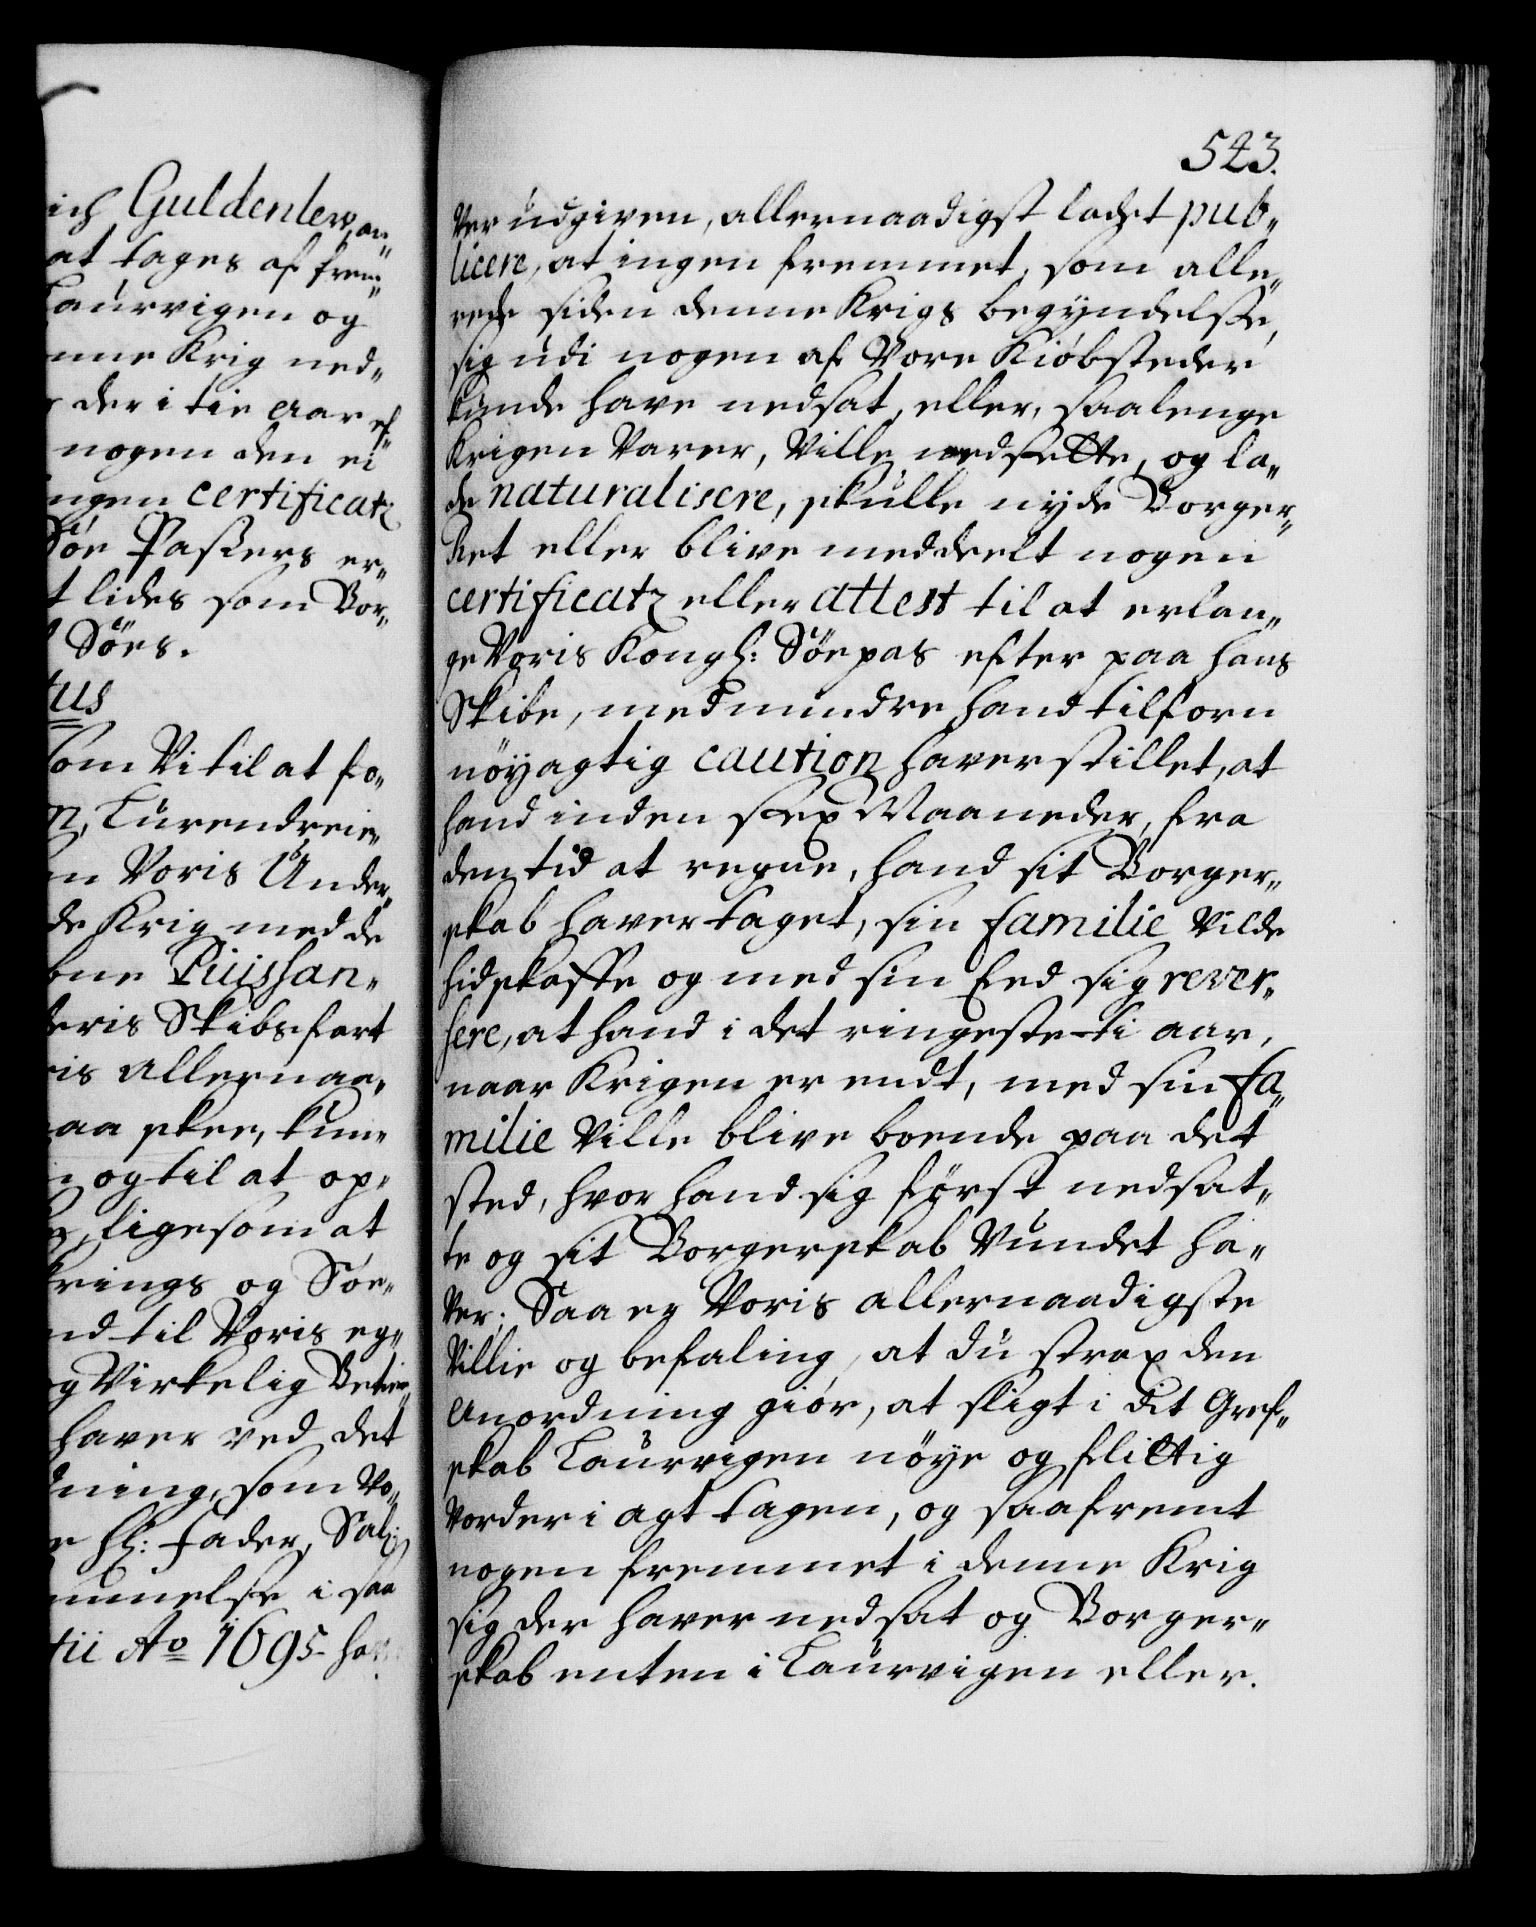 ich Guldenlew, an„
at tages af frem„
Laurvigen og
enne Krig ned„
der i tie Aar ef„
nogen den ei
ingen certificatz
Söe Passers er„
t lides som Bor„
Söes.
tus
som Vi til at fo„
n, Lurendreie„
en Voris Under„
de Krig med de
bne Puissan„
deris Skibsfart
ris allernaa„
aa skee, kun„
og til at op„
ligesom at
krings og Söe„
nd til Voris eg„
og Virkelig Betien„
haver ved det
dning, som Vo„
e H: Fader, Sal:
ummelse i saa
tii Ao 1695 ha
523.
ver udgiven, allernaadigst ladet pub„
licere, at ingen fremmet, som alle„
rede siden denne Krigs begÿndelsse,
sig udi nogen af Vore Kiöbsteder
kunde have nedsat, eller, saalenge
Krigen Varer, Ville nedsette, og la„
de naturalisere, skulle nyde Borger„
Ret eller blive meddeelt nogen
certificatz eller attest til at erlan„
ge Voris Kongl: Söepas efter paa hans
Skibe, med mindre hand tilforn
nöyagtig caution haver stillet, at
hand inden sex Maaneder, fra
den tid at regne, hand sit Borger„
skab haver taget, sin familie Vilde
hidskaffe og med sin Eed sig rever„
sere, at hand i det ringeste ti aar,
naar Krigen er endt, med sin fa„
milie Ville blive boende paa det
sted, hvor hand sig først nedsat„
te og sit Borgerskab Vundet ha„
ver; Saa er Voris allernaadigste
Villie og befaling, at du strax den
Anordning giör, at sligt i dit Gref„
skab Laurvigen nöye og flittig
Vorder i agt tagen, og saafremt
nogen fremmet i denne Krig
sig der haver nedsat og Borger„
skab enten i Laurvigen eller.